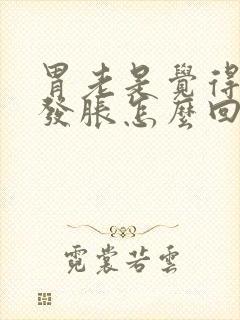 胃老是覺得
發脹怎麼回
霓裳若雲